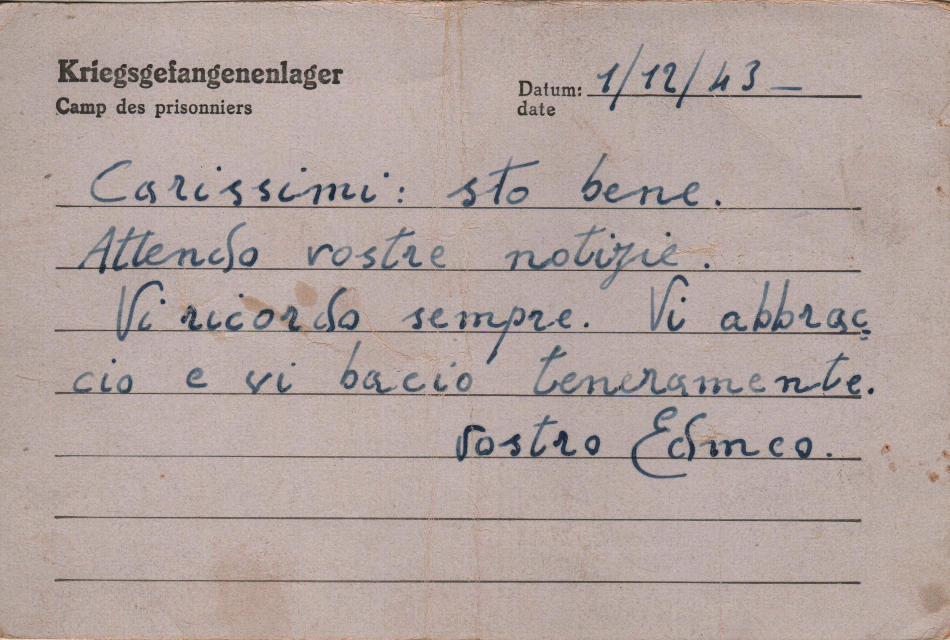 Kriegsgefangenenlager
Camp des prisonniers
Datum: 1/12/43 –
date
Carissimi: sto bene.
Attendo vostre notizie.
Vi ricordo sempre. Vi abbrac=
cio e vi bacio teneramente.
Vostro Edmeo.